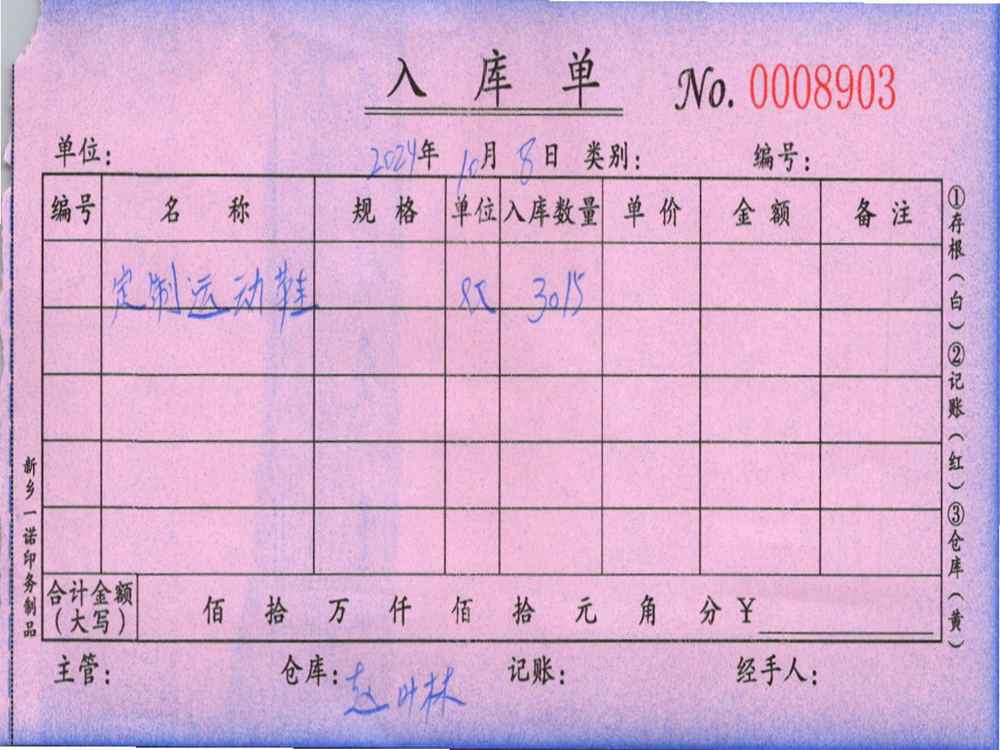 入库单 No. 0008903
单位： 2024年10月8日 类别： 编号：
编号 名称 规格 单位 入库数量 单价 金额 备注
定制运动鞋 双 3015
合计金额（大写） 佰 拾 万 仟 佰 拾 元 角 分 ￥
主管： 仓库：赵叶林 记账： 经手人：
①存根（白）②记账（红）③仓库（黄）
新乡一诺印务制品